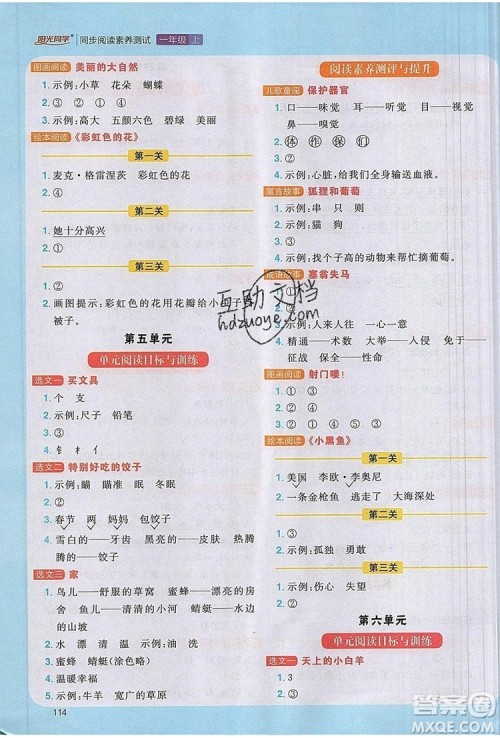 阳光同学 同步阅读素养测试 一年级 上
图画阅读 美丽的大自然
1. 示例:小草 花朵 蝴蝶
2. ①
3. 示例:高大 五颜六色 碧绿 美丽
绘本阅读 《彩虹色的花》
第一关
1. 麦克·格雷涅茨 彩虹色的花
2. ④
第二关
1. 她十分高兴
2. ②
第三关
1. ①
2. 画图提示:彩虹色的花用花瓣给小
被子。
第五单元
单元阅读目标与训练
选文一 买文具
1. 个 支
2. 示例:尺子 铅笔
3. ①
4. 钅 亻
选文二 特别好吃的饺子
1. 示例:瞄 瞎 眠
2. ②
3. 春节 两 妈妈 包饺子
4. 雪白的——牙齿 厚厚的——皮肤
弯弯的——眉毛
选文三 家
1. 鸟儿——舒服的草窝 蜜蜂——漂亮的房
子 鱼儿——清清的小河 蜻蜓——水边
的山坡
2. 水 漂 清 温 示例:油 洗
3. 蜜蜂 蜻蜓(涂色略)
4. 温暖幸福
5. 示例:牛羊 宽广的草原
114
阅读素养测评与提升
儿歌童谣 保护器官
1. 口——味觉 耳——听觉 目——视觉
鼻——嗅觉
3. ①
4. 示例:心脏:给全身输送血液。
寓言故事 狐狸和葡萄
1. 示例:串 只 则
2. 示例:猫 狗
3. ③
4. 示例:找个子高的动物来帮忙摘葡萄。
成语故事 塞翁失马
1. ②
2. ①
3. 示例:人来人往 一心一意
4. 精通——术数 大举——入侵 应征——
征战 保全——性命
图画阅读 射门喽!
1. ① ② ③ ④
2. 示例:① ② ④ ⑤ ③
绘本阅读 《小黑鱼》
第一关
1. 美国 李欧·李奥尼
2. 一条金枪鱼 逃走了 大海深处
第二关
1. ②
2. 示例:孤独 勇敢
第三关
1. 示例:伤心 失望
2. ④
第六单元
单元阅读目标与训练
选文一 天上的小白羊
1. 3
2. ②
互助文档
hdzuoye.com
答案圈
MXQE.COM